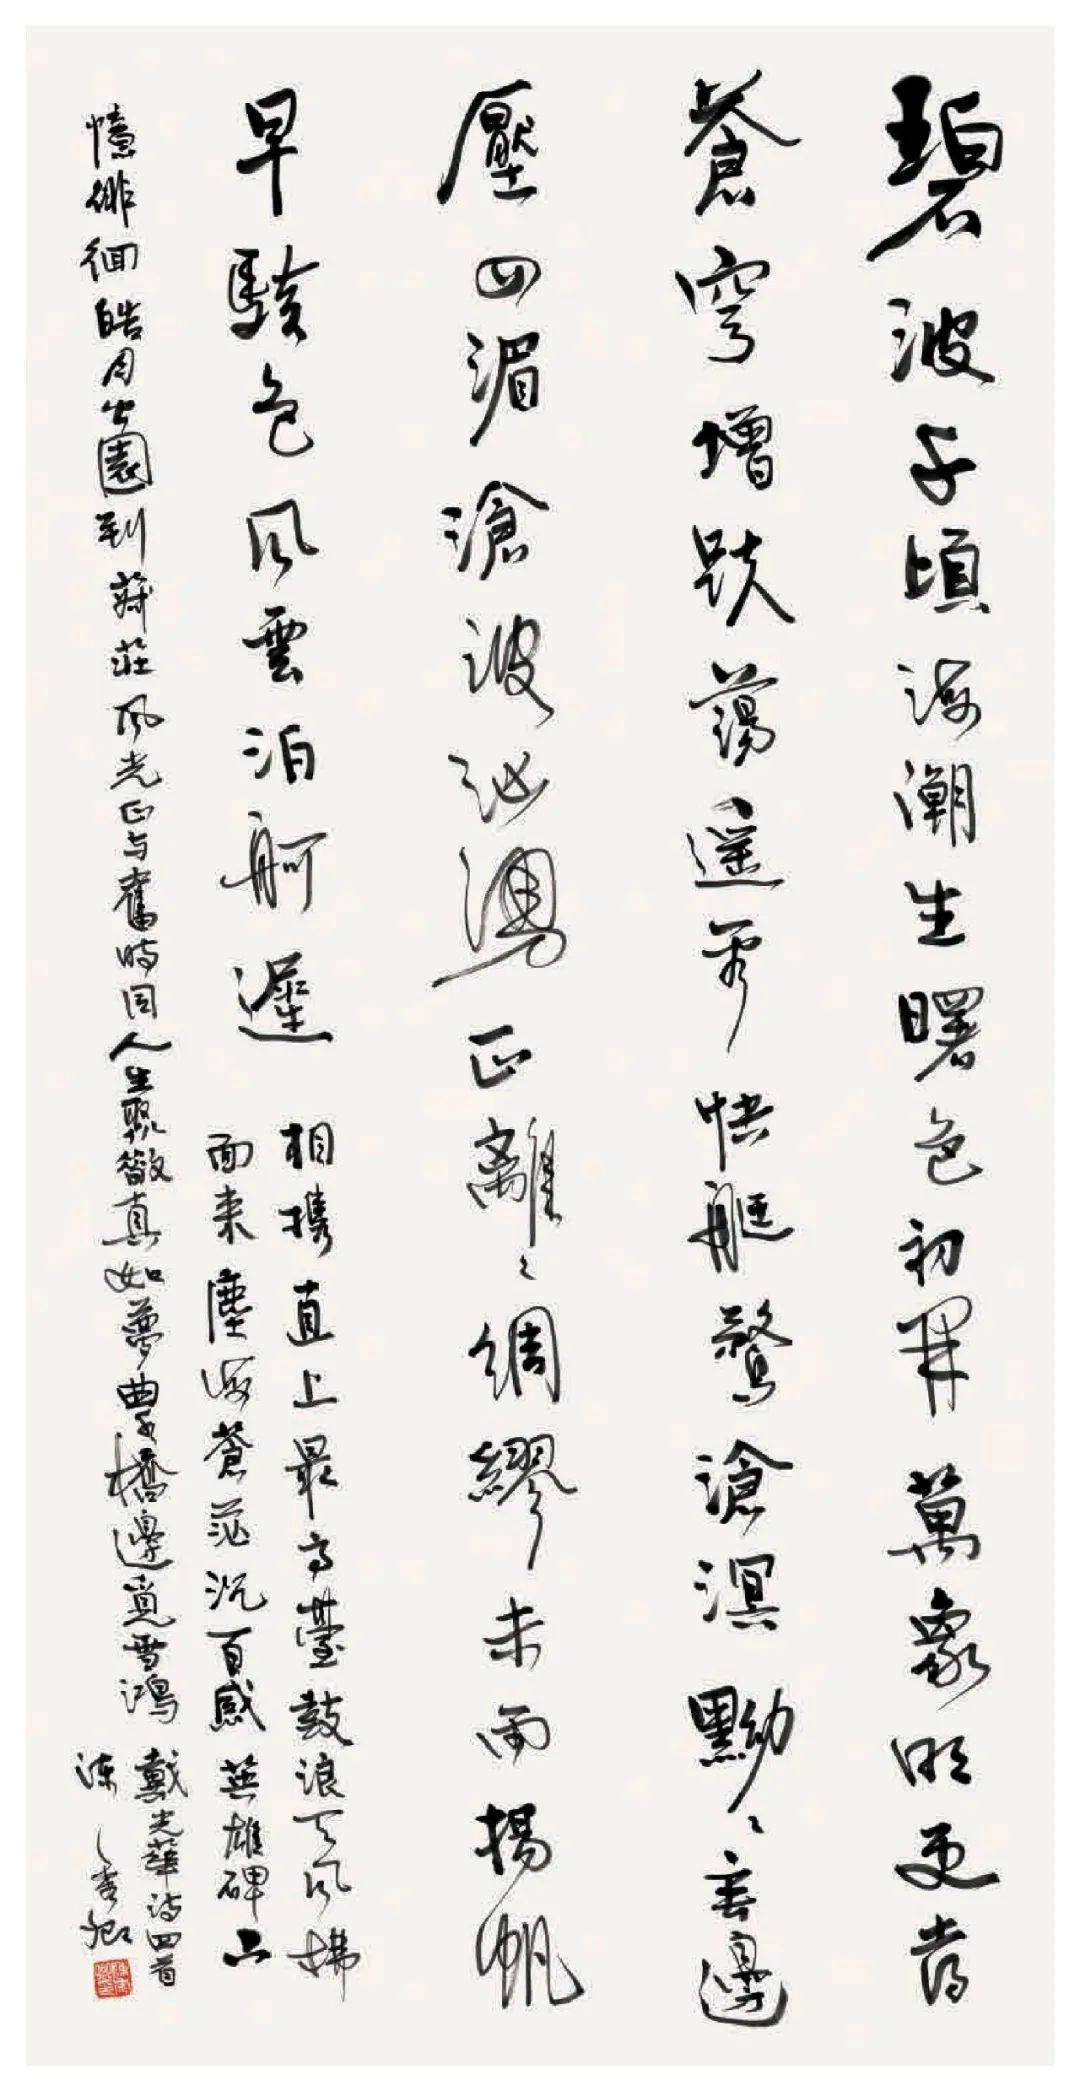 碧波千頃海潮生曙色初開萬象明更喜
蒼穹增跌蕩遥看快艇驚滄溟黝〻無邊
壓四湄滄波汹湧正離〻綢繆未雨揚帆
早駭色風雲泊舸遲
相携直上最高臺鼓浪天風拂
面来塵海蒼茫沉百感英雄碑下
憶徘徊皓月公園到蔣莊風光正与舊時同人生聚散真如夢曲橋邊覓雪鴻
戴光華詩四首
陳秀卿